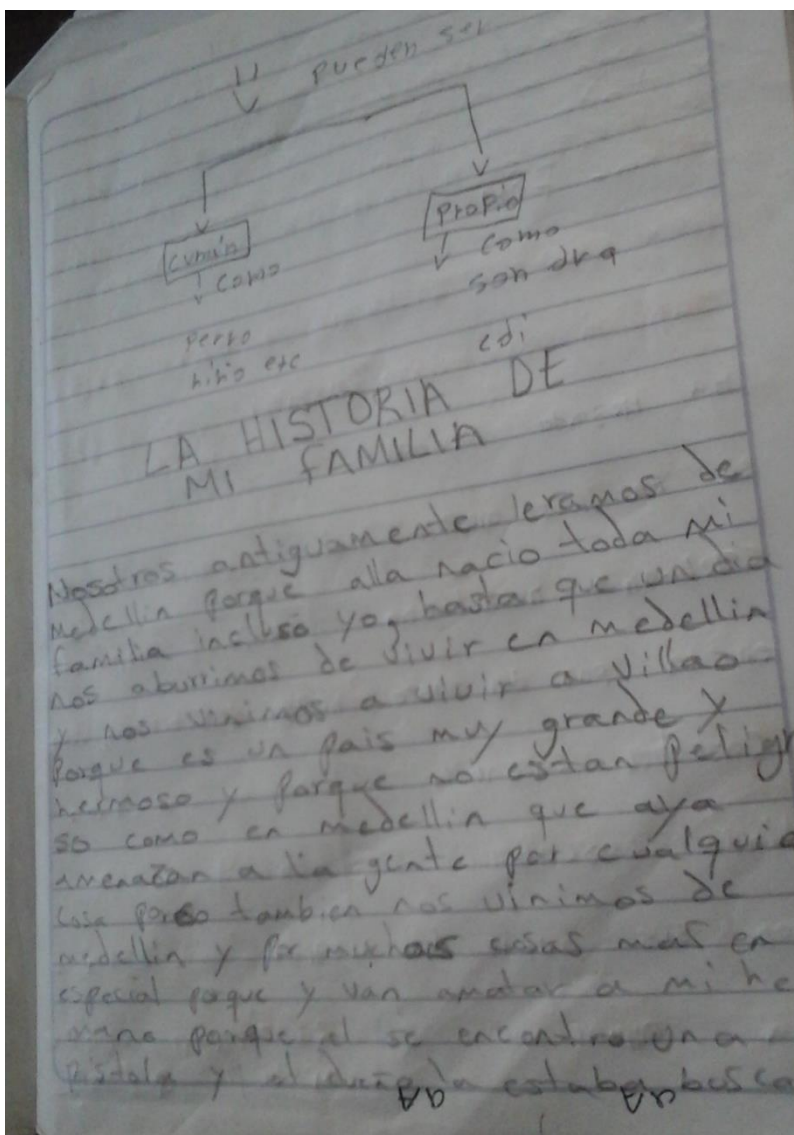 pueden ser
cumún
propio
como
como
son dra
perro
niño etc
edi
LA HISTORIA DE
MI FAMILIA
Nosotros antiguamente eramos de
Medellin porque alla nacio toda mi
familia incluso yo, hasta que un dia
nos aburrimos de vivir en medellin
y nos vinimos a vivir a villao
porque es un pais muy grande y
hermoso y porque no estan peligr
so como en medellin que aya
amenazan a la gente por cualquie
cosa tambien nos vinimos de
medellin y por muchas cosas mas en
especial porque y van amatar a mi he
mano porque el se encontro una
pistola y el estaba busca